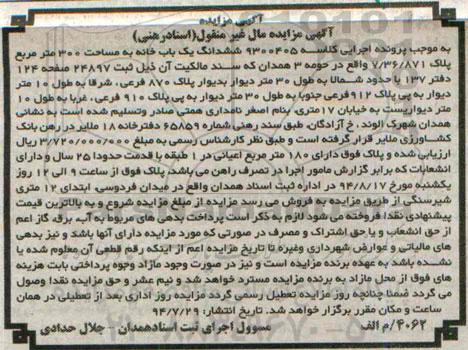 آگهی مزایده
آگهی مزایده مال غیر منقول(اسنادرهنی)
به موجب پرونده اجرایی کلاسه ۹۳۰۰۴۰۵ ششدانگ یک باب خانه به مساحت ۳۰۰ متر مربع
پلاک ۷/۳۶/۸۷۱ واقع در حومه ۳ همدان که سند مالکیت آن ذیل ثبت ۲۴۸۹۷ صفحه ۱۲۴
دفتر ۱۳۷ با حدود شمالا به طول ۳۰ متر دیوار بدیوار پلاک ۸۷۰ فرعی، شرقا به طول ۱۰ متر
دیوار به پی پلاک ۹۱۲ فرعی جنوبا به طول ۳۰ متر دیوار به پی پلاک ۹۱۰ فرعی، غربا به طول ۱۰
متر دیواریست به خیابان ۱۷ متری، بنام اصغر نامداری همتی صادر وتسلیم شده است به نشانی
همدان شهرک الوند، خ آزادگان، طبق سند رهنی شماره ۶۵۸۵۹ دفترخانه ۱۸ ملایر در رهن بانک
کشاورزی ملایر قرار گرفته است و طبق نظر کارشناس رسمی به مبلغ ۳/۷۲۰/۰۰۰/۰۰۰ ریال
ارزیابی شده و پلاک فوق دارای ۱۸۰ متر مربع اعیانی در ۱ طبقه با قدمت حدودا ۲۵ سال و دارای
انشعابات که برابر گزارش مامور اجرا در تصرف راهن می باشد، پلاک فوق از ساعت ۹ الی ۱۲ روز
یکشنبه مورخ ۹۴/۸/۱۷ در اداره ثبت اسناد همدان واقع در میدان فردوسی، ابتدای ۱۲ متری
شیرسنگی از طریق مزایده به فروش می رسد مزایده از مبلغ مزایده شروع و به بالاترین قیمت
پیشنهادی نقدا فروخته می شود لازم به ذکر است پرداخت بدهی های مربوط به آب، برق، گاز اعم
از حق انشعاب و یا حق اشتراک و مصرف در صورتی که مورد مزایده دارای آنها باشد و نیز بدهی
های مالیاتی و عوارض شهرداری وغیره تا تاریخ مزایده اعم از اینکه رقم قطعی آن معلوم شده یا
نشده باشد به عهده برنده مزایده است و نیز در صورت وجود مازاد وجوه پرداختی بابت هزینه
های فوق از محل مازاد به برنده مزایده مسترد خواهد شد و نیم عشر و حق مزایده نقدا وصول
می گردد ضمنا چنانچه روز مزایده تعطیل رسمی گردد مزایده روز اداری بعد از تعطیلی در همان
ساعت و مکان مقرر برگزار خواهد شد. تاریخ انتشار: ۹۴/۷/۲۹
۴۰۶۲/م الف مسوول اجرای ثبت اسنادهمدان - جلال حدادی